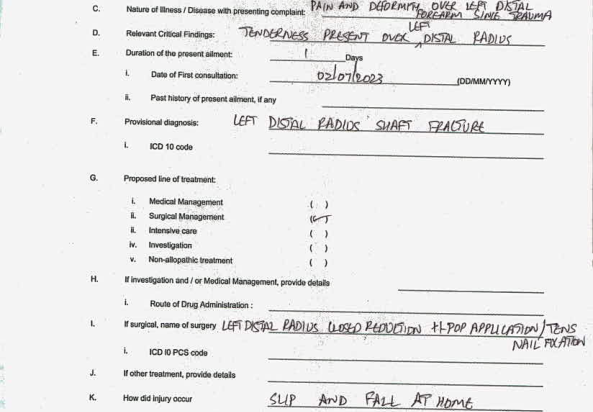 C. Nature of Illness / Disease with presenting complaint: PAIN AND DEFORMITY OVER LEFT DISTAL
FOREARM SINCE TRAUMA
D. Relevant Critical Findings: TENDERNESS PRESENT OVER LEFT DISTAL RADIUS
E. Duration of the present ailment: 1 Days
i. Date of First consultation: 02/07/2023 (DD/MM/YYYY)
ii. Past history of present ailment, if any
F. Provisional diagnosis: LEFT DISTAL RADIUS SHAFT FRACTURE
i. ICD 10 code
G. Proposed line of treatment:
i. Medical Management ( )
ii. Surgical Management (✓)
ii. Intensive care ( )
iv. Investigation ( )
v. Non-allopathic treatment ( )
H. If investigation and / or Medical Management, provide details
i. Route of Drug Administration :
I. If surgical, name of surgery LEFT DISTAL RADIUS CLOSED REDUCTION +/- POP APPLICATION / TENS
NAIL FIXATION
i. ICD I0 PCS code
J. If other treatment, provide details
K. How did injury occur SLIP AND FALL AT HOME